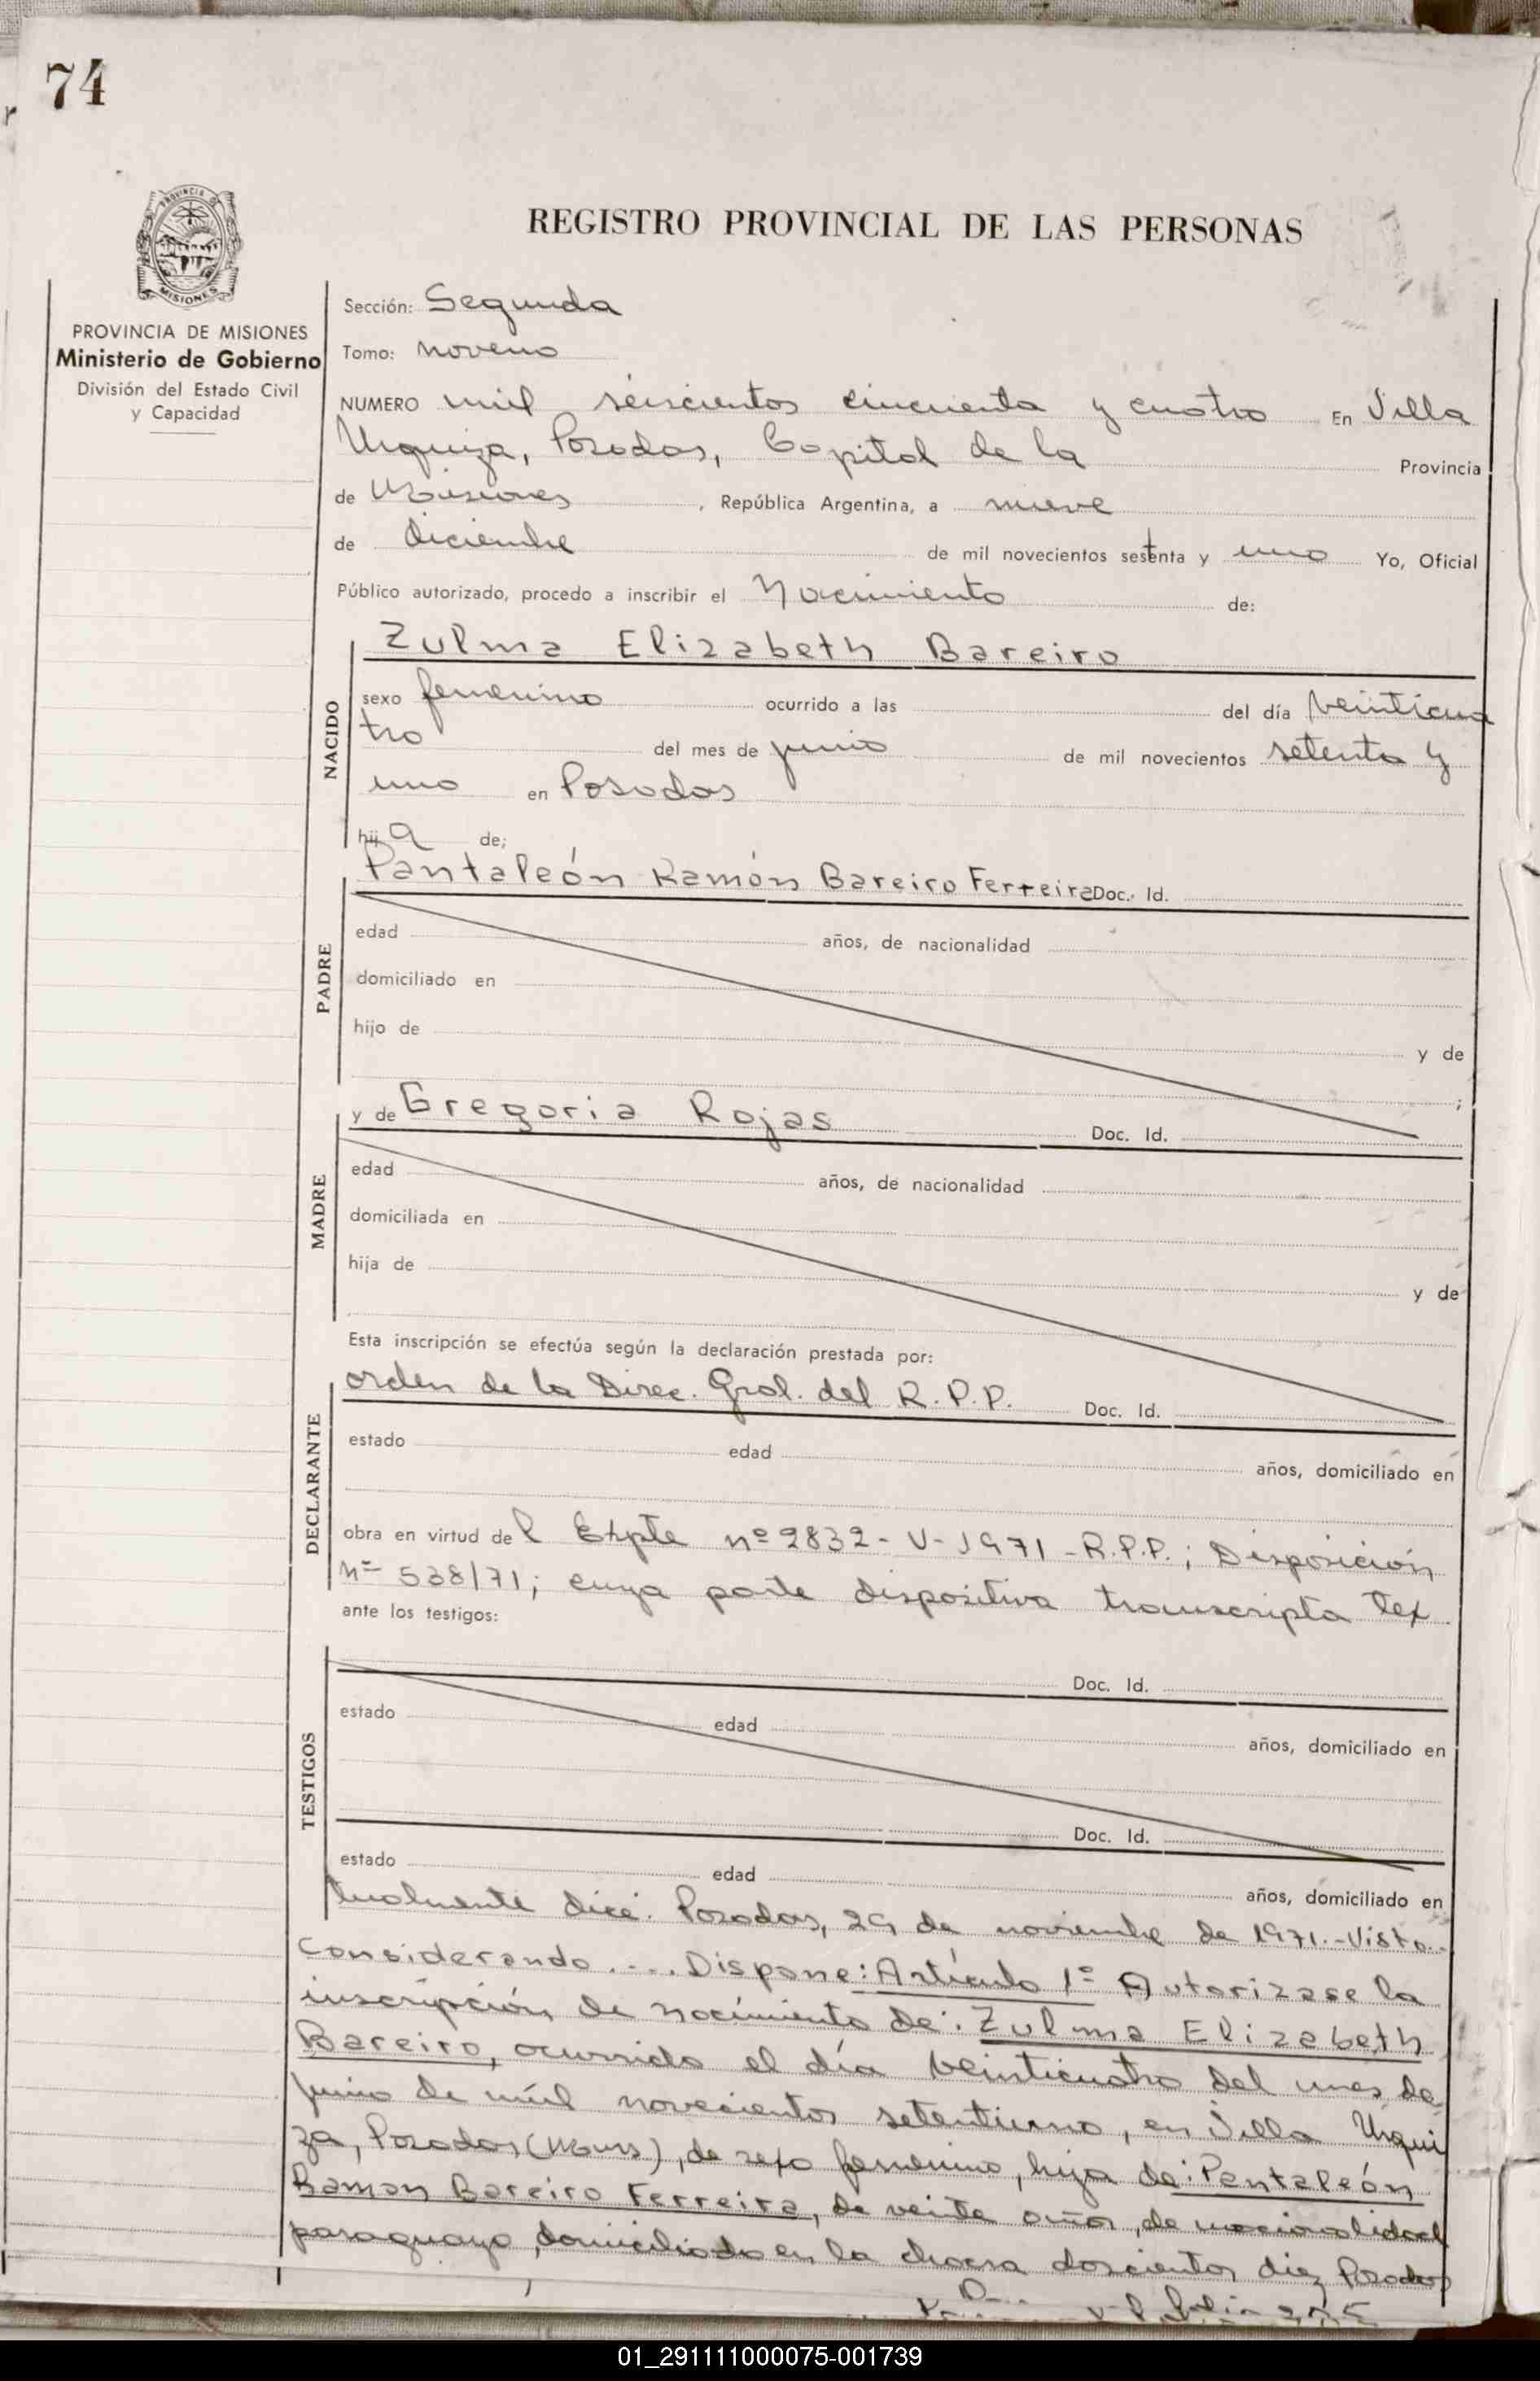 74
PROVINCIA DE
MISIONES
PROVINCIA DE MISIONES
Ministerio de Gobierno
División del Estado Civil
y Capacidad
REGISTRO PROVINCIAL DE LAS PERSONAS
Sección: Segunda
Tomo: noveno
NUMERO mil seiscientos cincuenta y cuatro En Villa
Urquiza, Posadas, Capital de la Provincia
de Misiones, República Argentina, a nueve
de diciembre de mil novecientos setenta y uno Yo, Oficial
Público autorizado, procedo a inscribir el Nacimiento de:
NACIDO
Zulma Elizabeth Bareiro
sexo femenino ocurrido a las del día veinticua
tro del mes de junio de mil novecientos setenta y
uno en Posadas
hija de;
PADRE
Pantaleón Ramón Bareiro Ferreira Doc. Id.
edad años, de nacionalidad
domiciliado en
hijo de y de
;
MADRE
y de Gregoria Rojas Doc. Id.
edad años, de nacionalidad
domiciliada en
hija de y de
Esta inscripción se efectúa según la declaración prestada por:
DECLARANTE
orden de la Direc. Gral. del R.P.P. Doc. Id.
estado edad años, domiciliado en
obra en virtud del Expte nº 2832-V-1971-R.P.P.; Disposición
Nº 538/71; cuya parte dispositiva transcripta tex
ante los testigos:
TESTIGOS
Doc. Id.
estado edad años, domiciliado en
Doc. Id.
estado edad años, domiciliado en
tualmente dice: Posadas, 29 de noviembre de 1971.-Visto..
Considerando .... Dispone: Artículo 1º Autorizase la
inscripción de nacimiento de: Zulma Elizabeth
Bareiro, ocurrido el día veinticuatro del mes de
junio de mil novecientos setentiuno, en Villa Urqui
za, Posadas (Mnes), de sexo femenino, hija de: Pantaleón
Ramon Bareiro Ferreira, de veinte años, de nacionalidad
paraguayo, domiciliado en la chacra doscientos diez Posadas
01_291111000075-001739